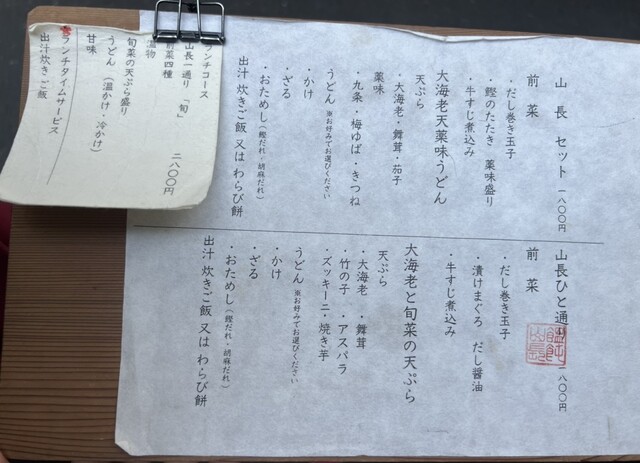 山長 セット 一八〇〇円
前菜
・だし巻き玉子
・鰹のたたき 薬味盛り
・牛すじ煮込み
大海老天薬味うどん
天ぷら
・大海老・舞茸・茄子
薬味
・九条・梅ゆば・きつね
うどん ※お好みでお選びください
・かけ
・ざる
・おためし(鰹だれ・胡麻だれ)
出汁炊きご飯 又は わらび餅
山長ひと通り 一八〇〇円
前菜
・だし巻き玉子
・漬けまぐろ だし醤油
・牛すじ煮込み
大海老と旬菜の天ぷら
天ぷら
・大海老 ・舞茸
・竹の子 ・アスパラ
・ズッキーニ・焼き芋
うどん ※お好みでお選びください
・かけ
・ざる
・おためし(鰹だれ・胡麻だれ)
出汁炊きご飯 又は わらび餅
ランチコース
山長一通り 「旬」 二八〇〇円
前菜四種
温物
旬菜の天ぷら盛り
うどん(温かけ・冷かけ)
甘味
ランチタイムサービス
出汁炊きご飯